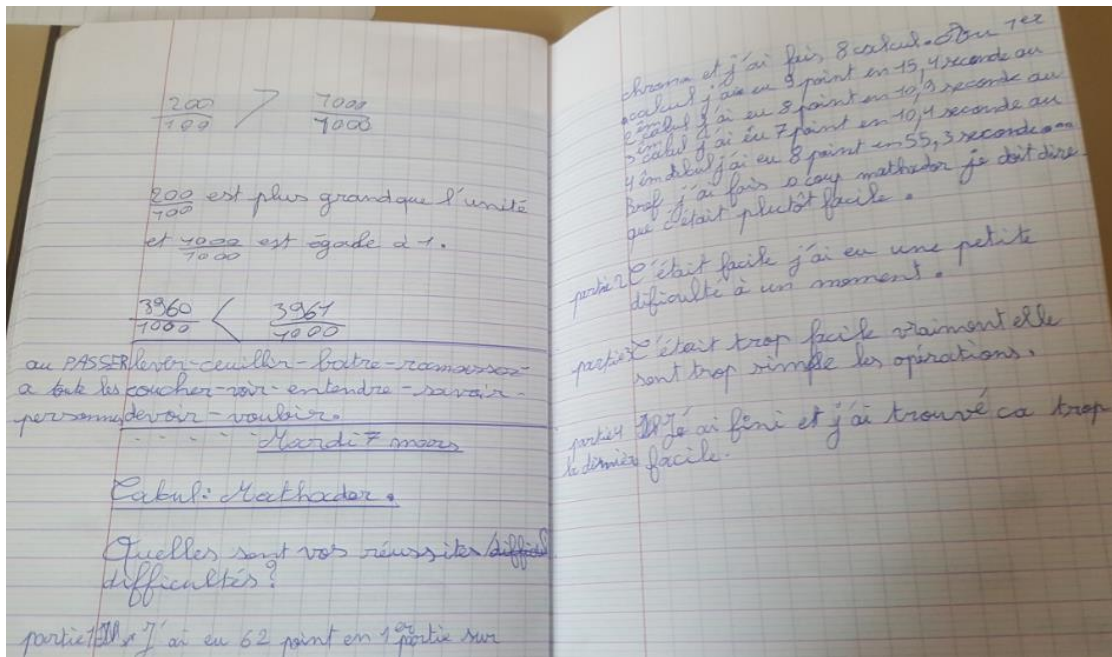 200/100 > 1000/1000
200/100 est plus grand que l'unité
et 1000/1000 est égade à 1.
3960/1000 < 3961/1000
au PASSER lever-ceuillir-batre-ramasser
a toute les coucher-voir-entendre-savoir-
personne devoir-vouloir.
Mardi 7 mars
Calcul: Mathador.
Quelles sont vos réussites/
difficultés?
partie 1 J'ai eu 62 point en 1 partie sur
chrono et j'ai fais 8 calcul. Au 1er
calcul j'ai eu 9 point en 15,4 seconde au
2 em calcul j'ai eu 8 point en 10,9 seconde au
3 em calcul j'ai eu 7 point en 10,4 seconde au
4 em calcul j'ai eu 8 point en 55,3 seconde...
Bref j'ai fais coup mathador je doit dire
que c'était plutôt facile.
partie 2 C'était facile j'ai eu une petite
dificulté à un moment.
partie 3 C'était trop facile vraiment elle
sont trop simple les opérations.
partie 4 J'ai fini et j'ai trouvé ca trop
la dernière facile.